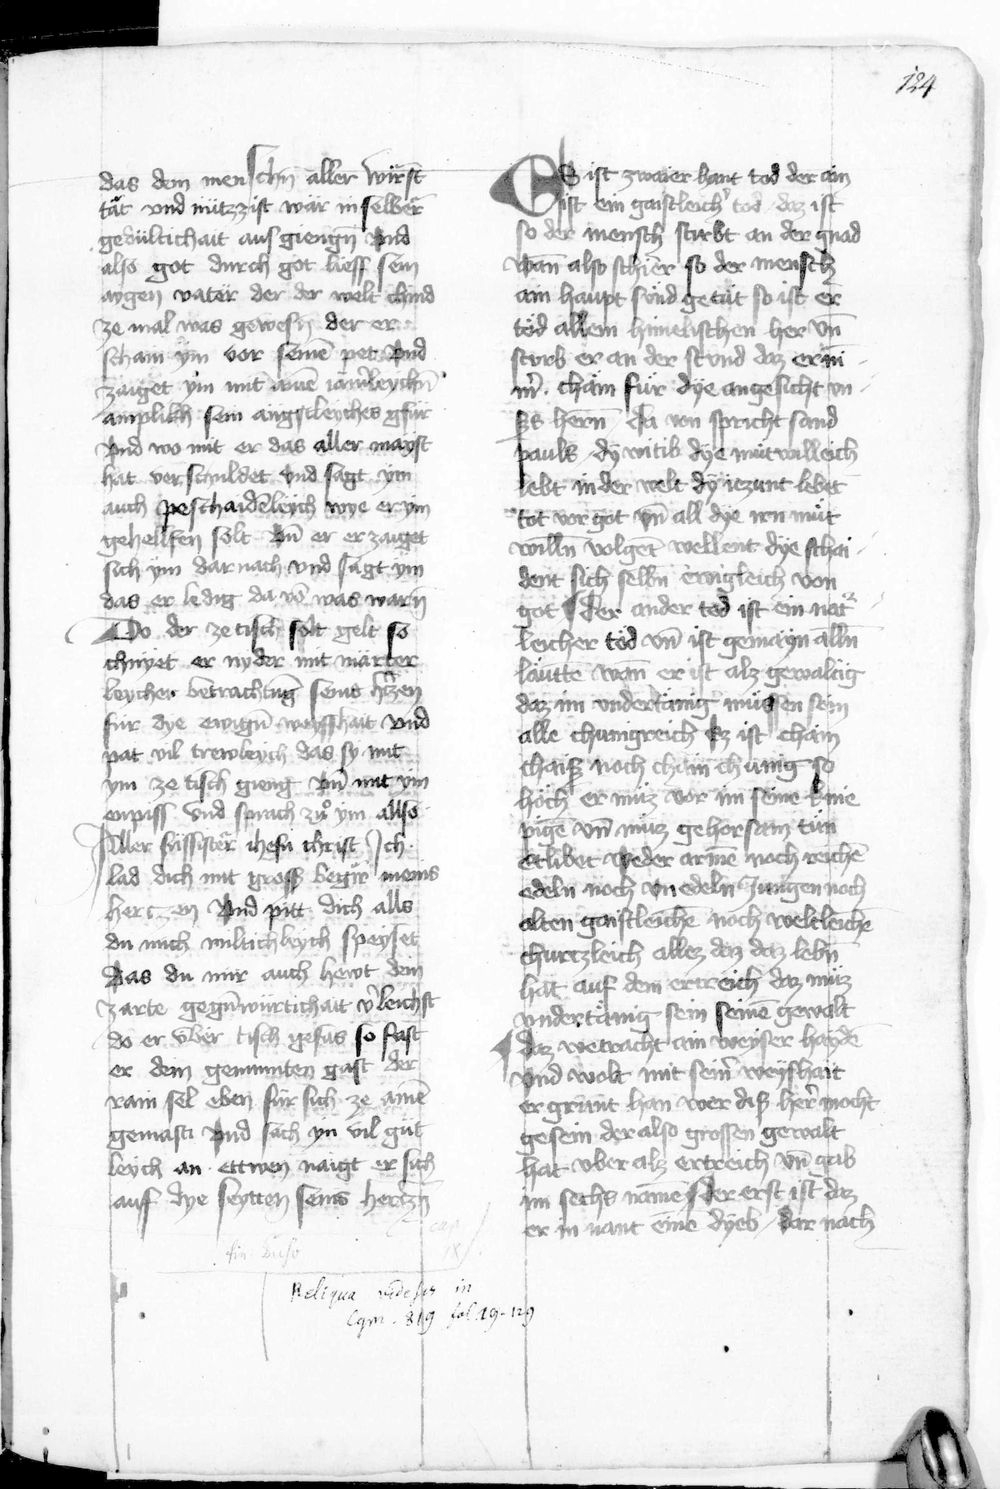 124
das dem menschn̄ aller wirst
tät vnd nützzist wär in selber
gedültichait aus giengn̄ vnd
also got durch got liess sein
aygen vater der der welt chind
ze mal was gewesn̄ der er
scham ym vor seinē pet vnd
zaiget ym mit ainē iämerleychn̄
amplikh sein angstleyches gfür
vnd wo mit er das aller mayst
hat verschuldet vnd sagt ym
auch peschaidēleych wye er ym
gehellfen solt vn̄ er erzaiget
sich ym dar nach vnd sagt ym
das er ledig da vō was warn̄
Do der ze tisch solt gen so
chnyet er nyder mit marter
leycher betrachtung seins hʼczen
für dye ewign̄ weyshait vnd
pat vil trewleych das sy mit
ym ze tisch gieng vn̄ mit ym
enpiss vnd sprach zů ym allso
Aller süssister ihesu christ Ich
lad dich mit grosser begir meins
herczen vnd pitt dich alls
du mich miltichleych speyset
Das du mir auch hewt dein
zarte gegn̄würtichait vʼleichst
do er vber tisch gesas so sast
er dem gemmten gast der
rain sel eben für sich ze ainē
gemasti vnd sach yn vil güt
leych an ettwen naigt er sich
auf dye seytten seins herczn̄
cap
IX
Reliqua videsis in
Cgm. 819 fol. 19-129
ES ist zwaier hant tod der ain
ist ein gaistleichʼ tod daz ist
so der mensch stirbt an der gnad
wan̄ also schier so der mensch
ain haupt sünd getüt so ist er
tod allem himelischen her vn̄
sturb er an der stund daz er nī
mʼ. chäm für dye angesicht vn
sers hern̄ da von spricht sand
pauls dy witib dye mütwilleich
lebt in der welt dy iezunt lebet
tot vor got vn̄ all dye irn müt
willn̄ volgēt wellent dye schai
dent sich selbn̄ ewigleich von
got Der ander tod ist ein natʼ
leicher tod vn̄ ist gemayn alln̄
läutte wan̄ er ist alz gewaltig
daz im vndertänig müssen sein
alle chunigreich ez ist chain
chaiser noch chain chunig so
hoch er müz vor im seine knie
pigē vn̄ müz gehorsam tün
er libet weder armē noch reichē
edeln noch vnedeln Jungen noch
alten gaistleichē noch weltleichē
churtzleich allez daz daz lebn̄
hat auf dem ertreich daz müz
vndertänig sein seinē gewalt
daz wetracht ain weyser haydē
vnd wolt mit seinʼ weyshait
ergrünt han wer diser herʼ mocht
gesein der also grossen gewalt
hat vber alz ertreich vn̄ gab
im sechs namē der erst ist daz
er in nant eine dyeb / dar nach